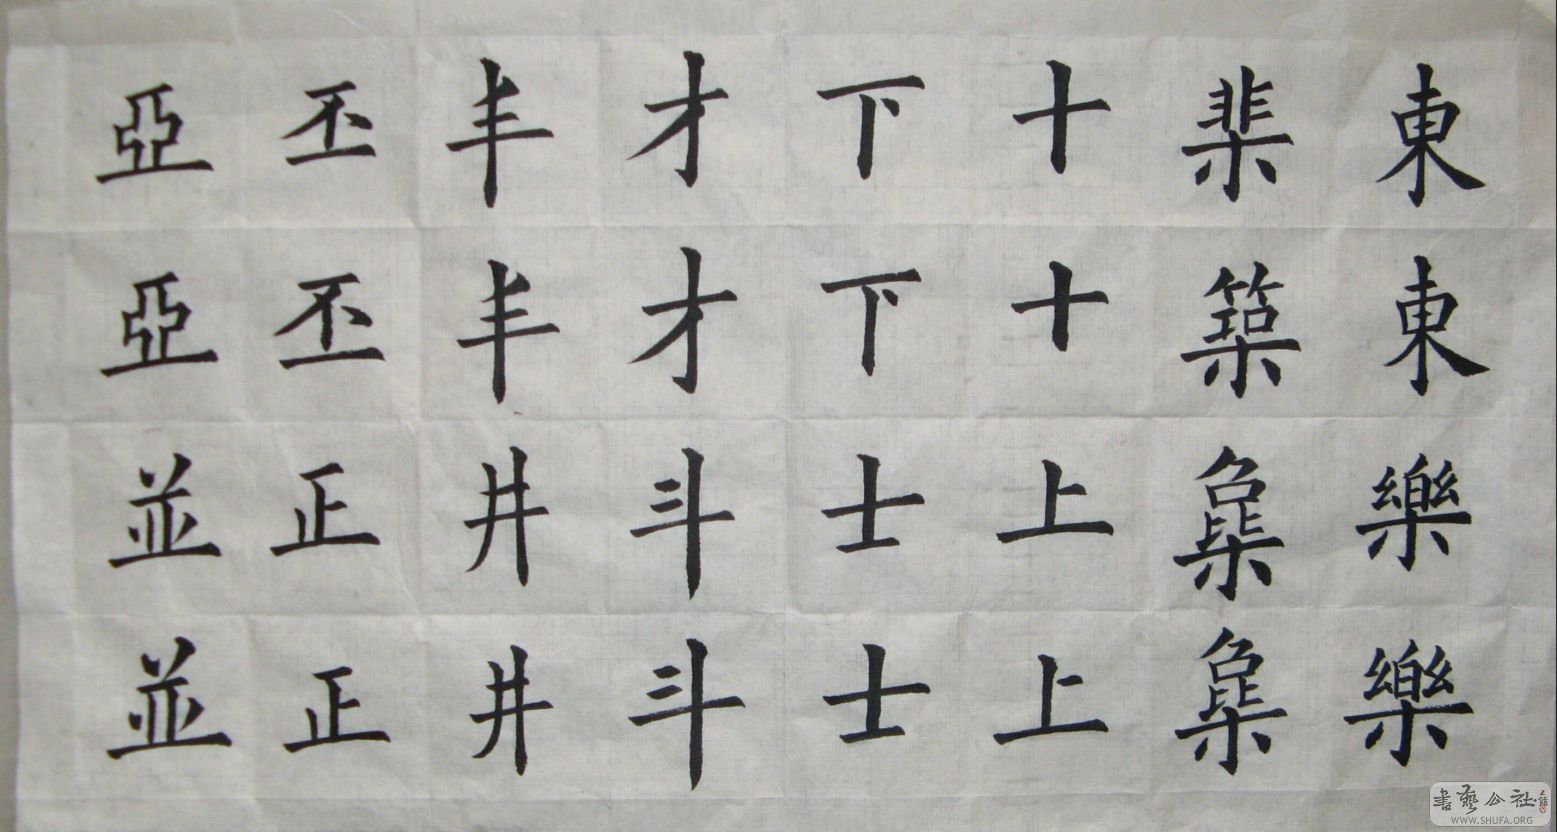 東東樂樂
棐築
十十上上
下下士士
才才斗斗
丰丰井井
丕丕正正
亞亞並並
書藝公社
WWW.SHUFA.ORG